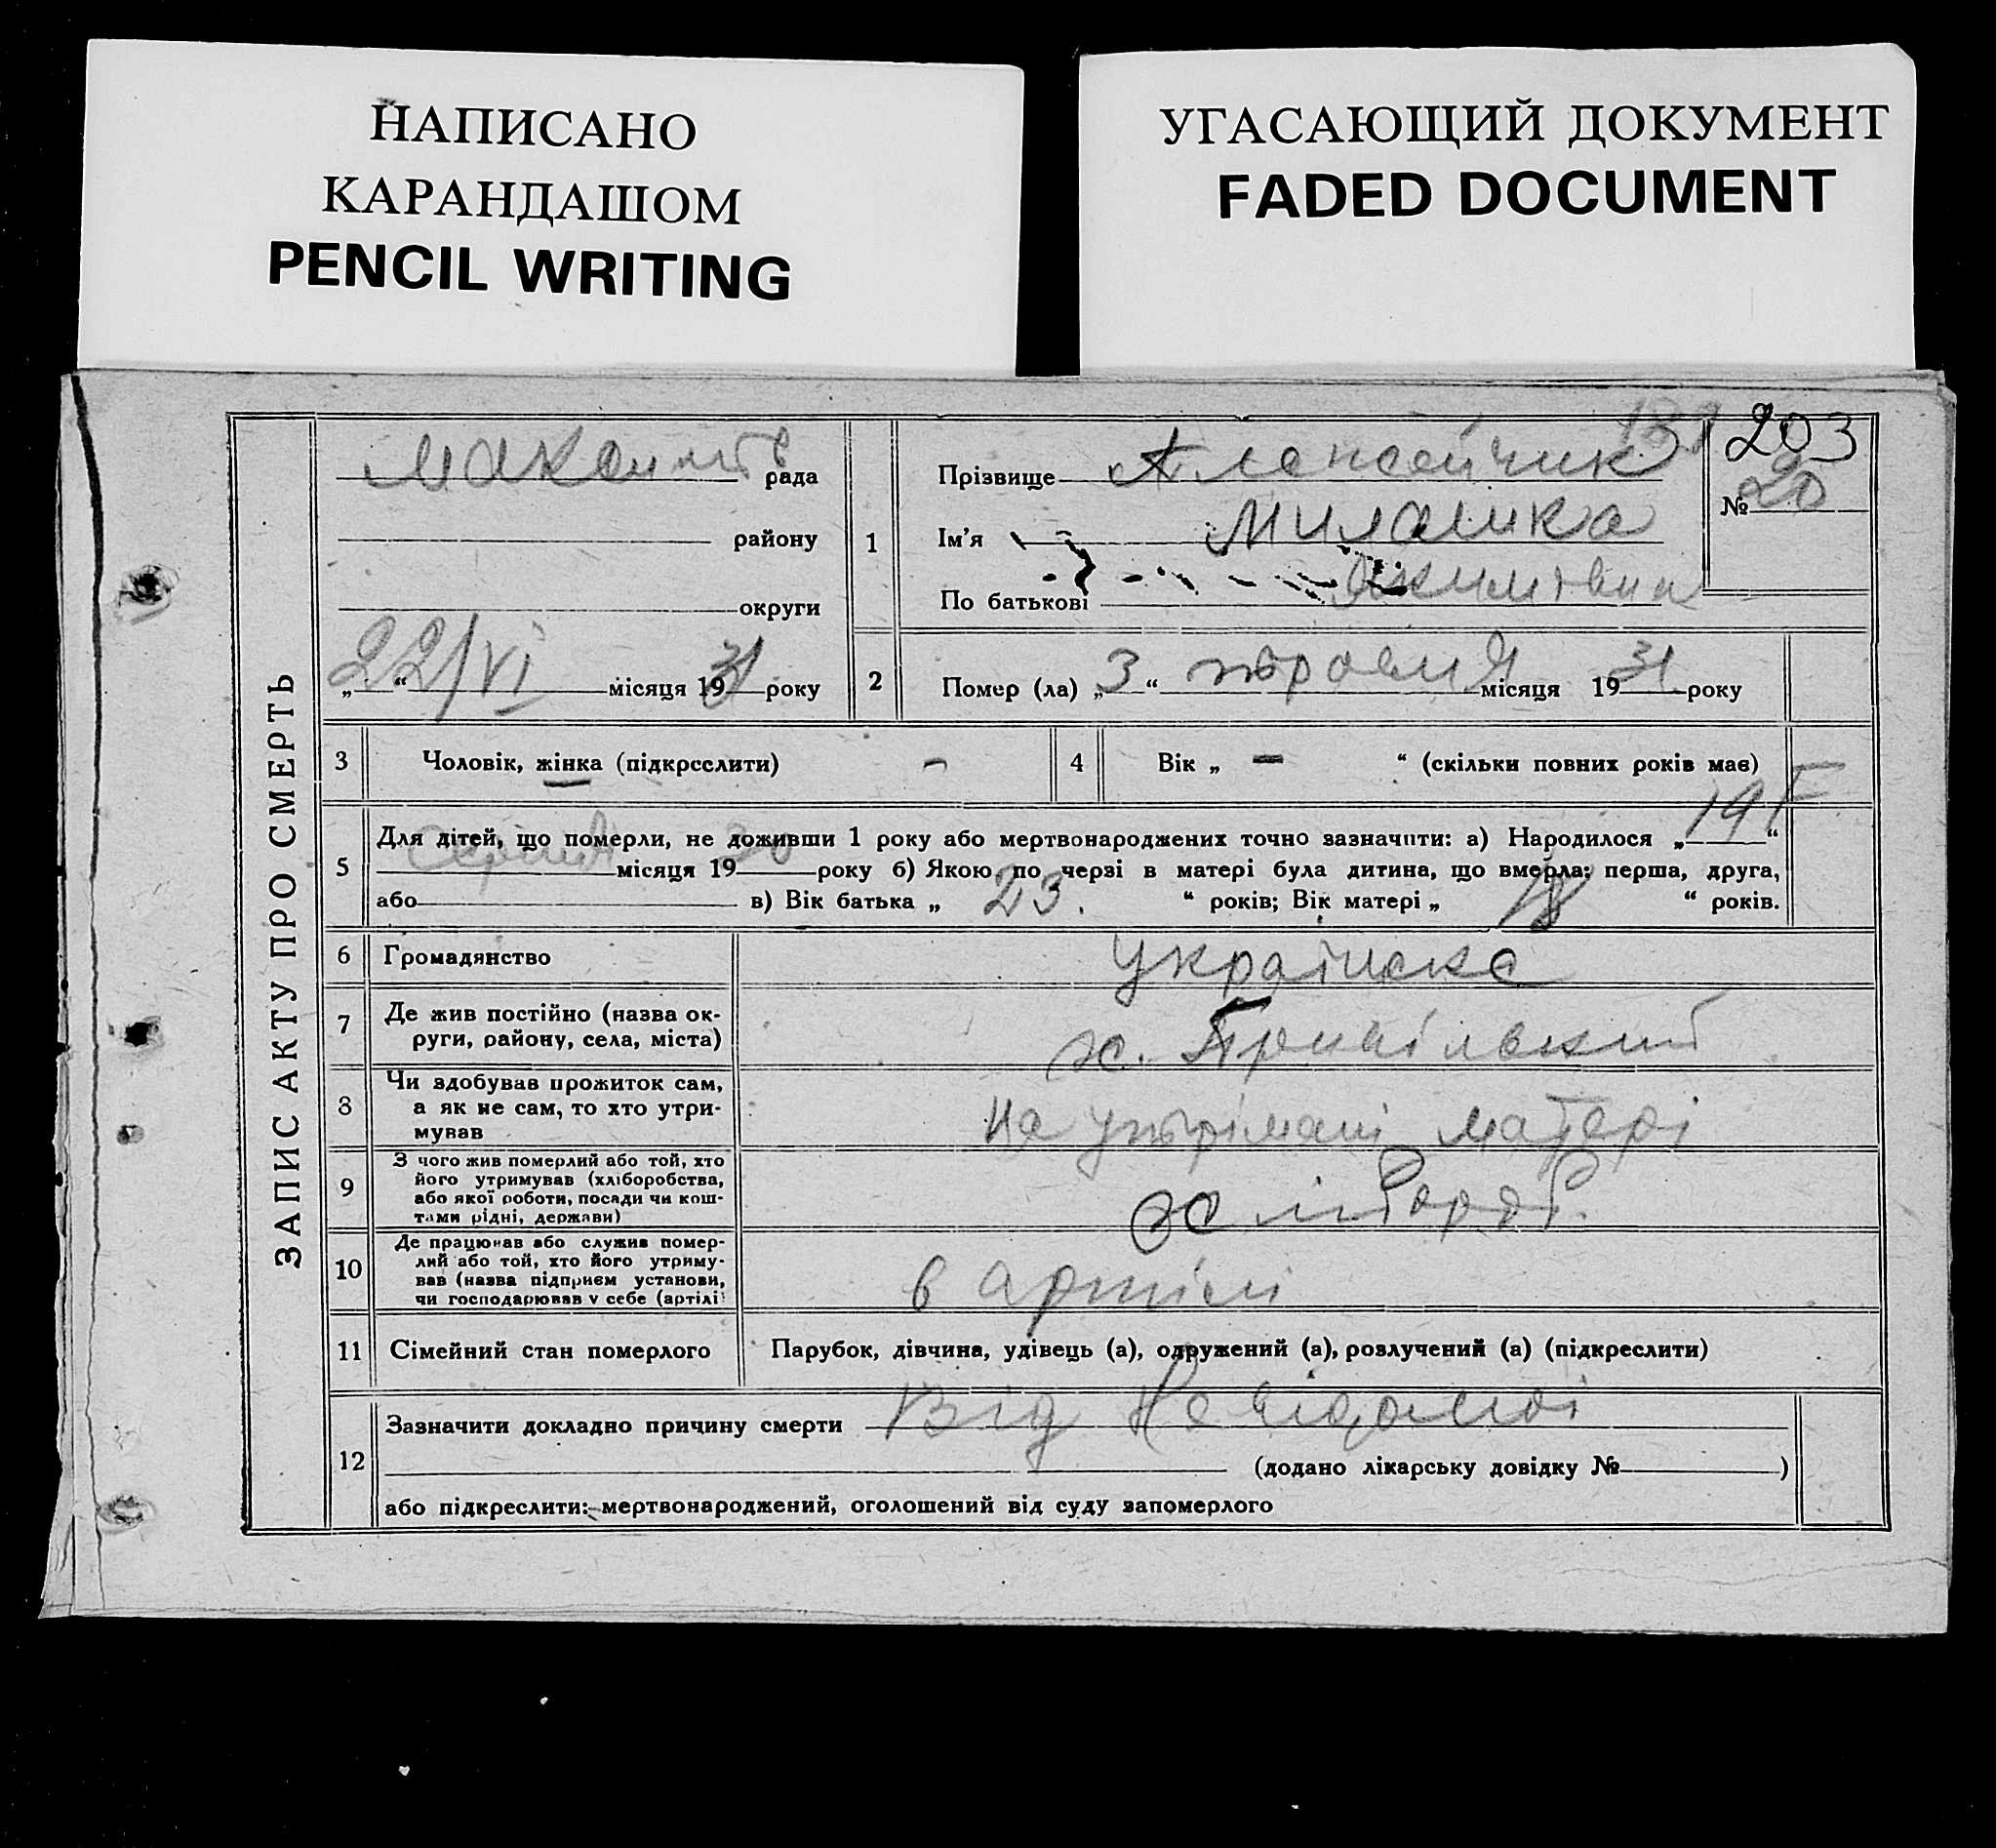 НАПИСАНО
КАРАНДАШОМ
PENCIL WRITING
УГАСАЮЩИЙ ДОКУМЕНТ
FADED DOCUMENT
203
ЗАПИС АКТУ ПРО СМЕРТЬ
рада
району
округи
„22/VI“ місяця 1931 року
1
Прізвище Алексейчик
Ім'я
По батькові
№ 20
2
Помер (ла) „3“ травня місяця 1931 року
3
Чоловік, жінка (підкреслити) –
4
Вік „ – “ (скільки повних років має)
5
Для дітей, що померли, не доживши 1 року або мертвонароджених точно зазначити: а) Народилося „19“
Серпня місяця 1930 року б) Якою по черзі в матері була дитина, що вмерла: перша, друга,
або в) Вік батька „ 23. “ років; Вік матері „ 18 “ років.
6
Громадянство
українське
7
Де жив постійно (назва ок-
руги, району, села, міста)
х.
8
Чи здобував прожиток сам,
а як не сам, то хто утри-
мував
на утрімані матері
9
З чого жив померлий або той, хто
його утримував (хліборобства,
або якої роботи, посади чи кош-
тами рідні, держави)
10
Де працював або служив помер-
лий або той, хто його утриму-
вав (назва підприєм установи,
чи господарював у себе (артілі)
в артілі
11
Сімейний стан померлого
Парубок, дівчина, удівець (а), одружений (а), розлучений (а) (підкреслити)
12
Зазначити докладно причину смерти Від
(додано лікарську довідку № )
або підкреслити: мертвонароджений, оголошений від суду запомерлого